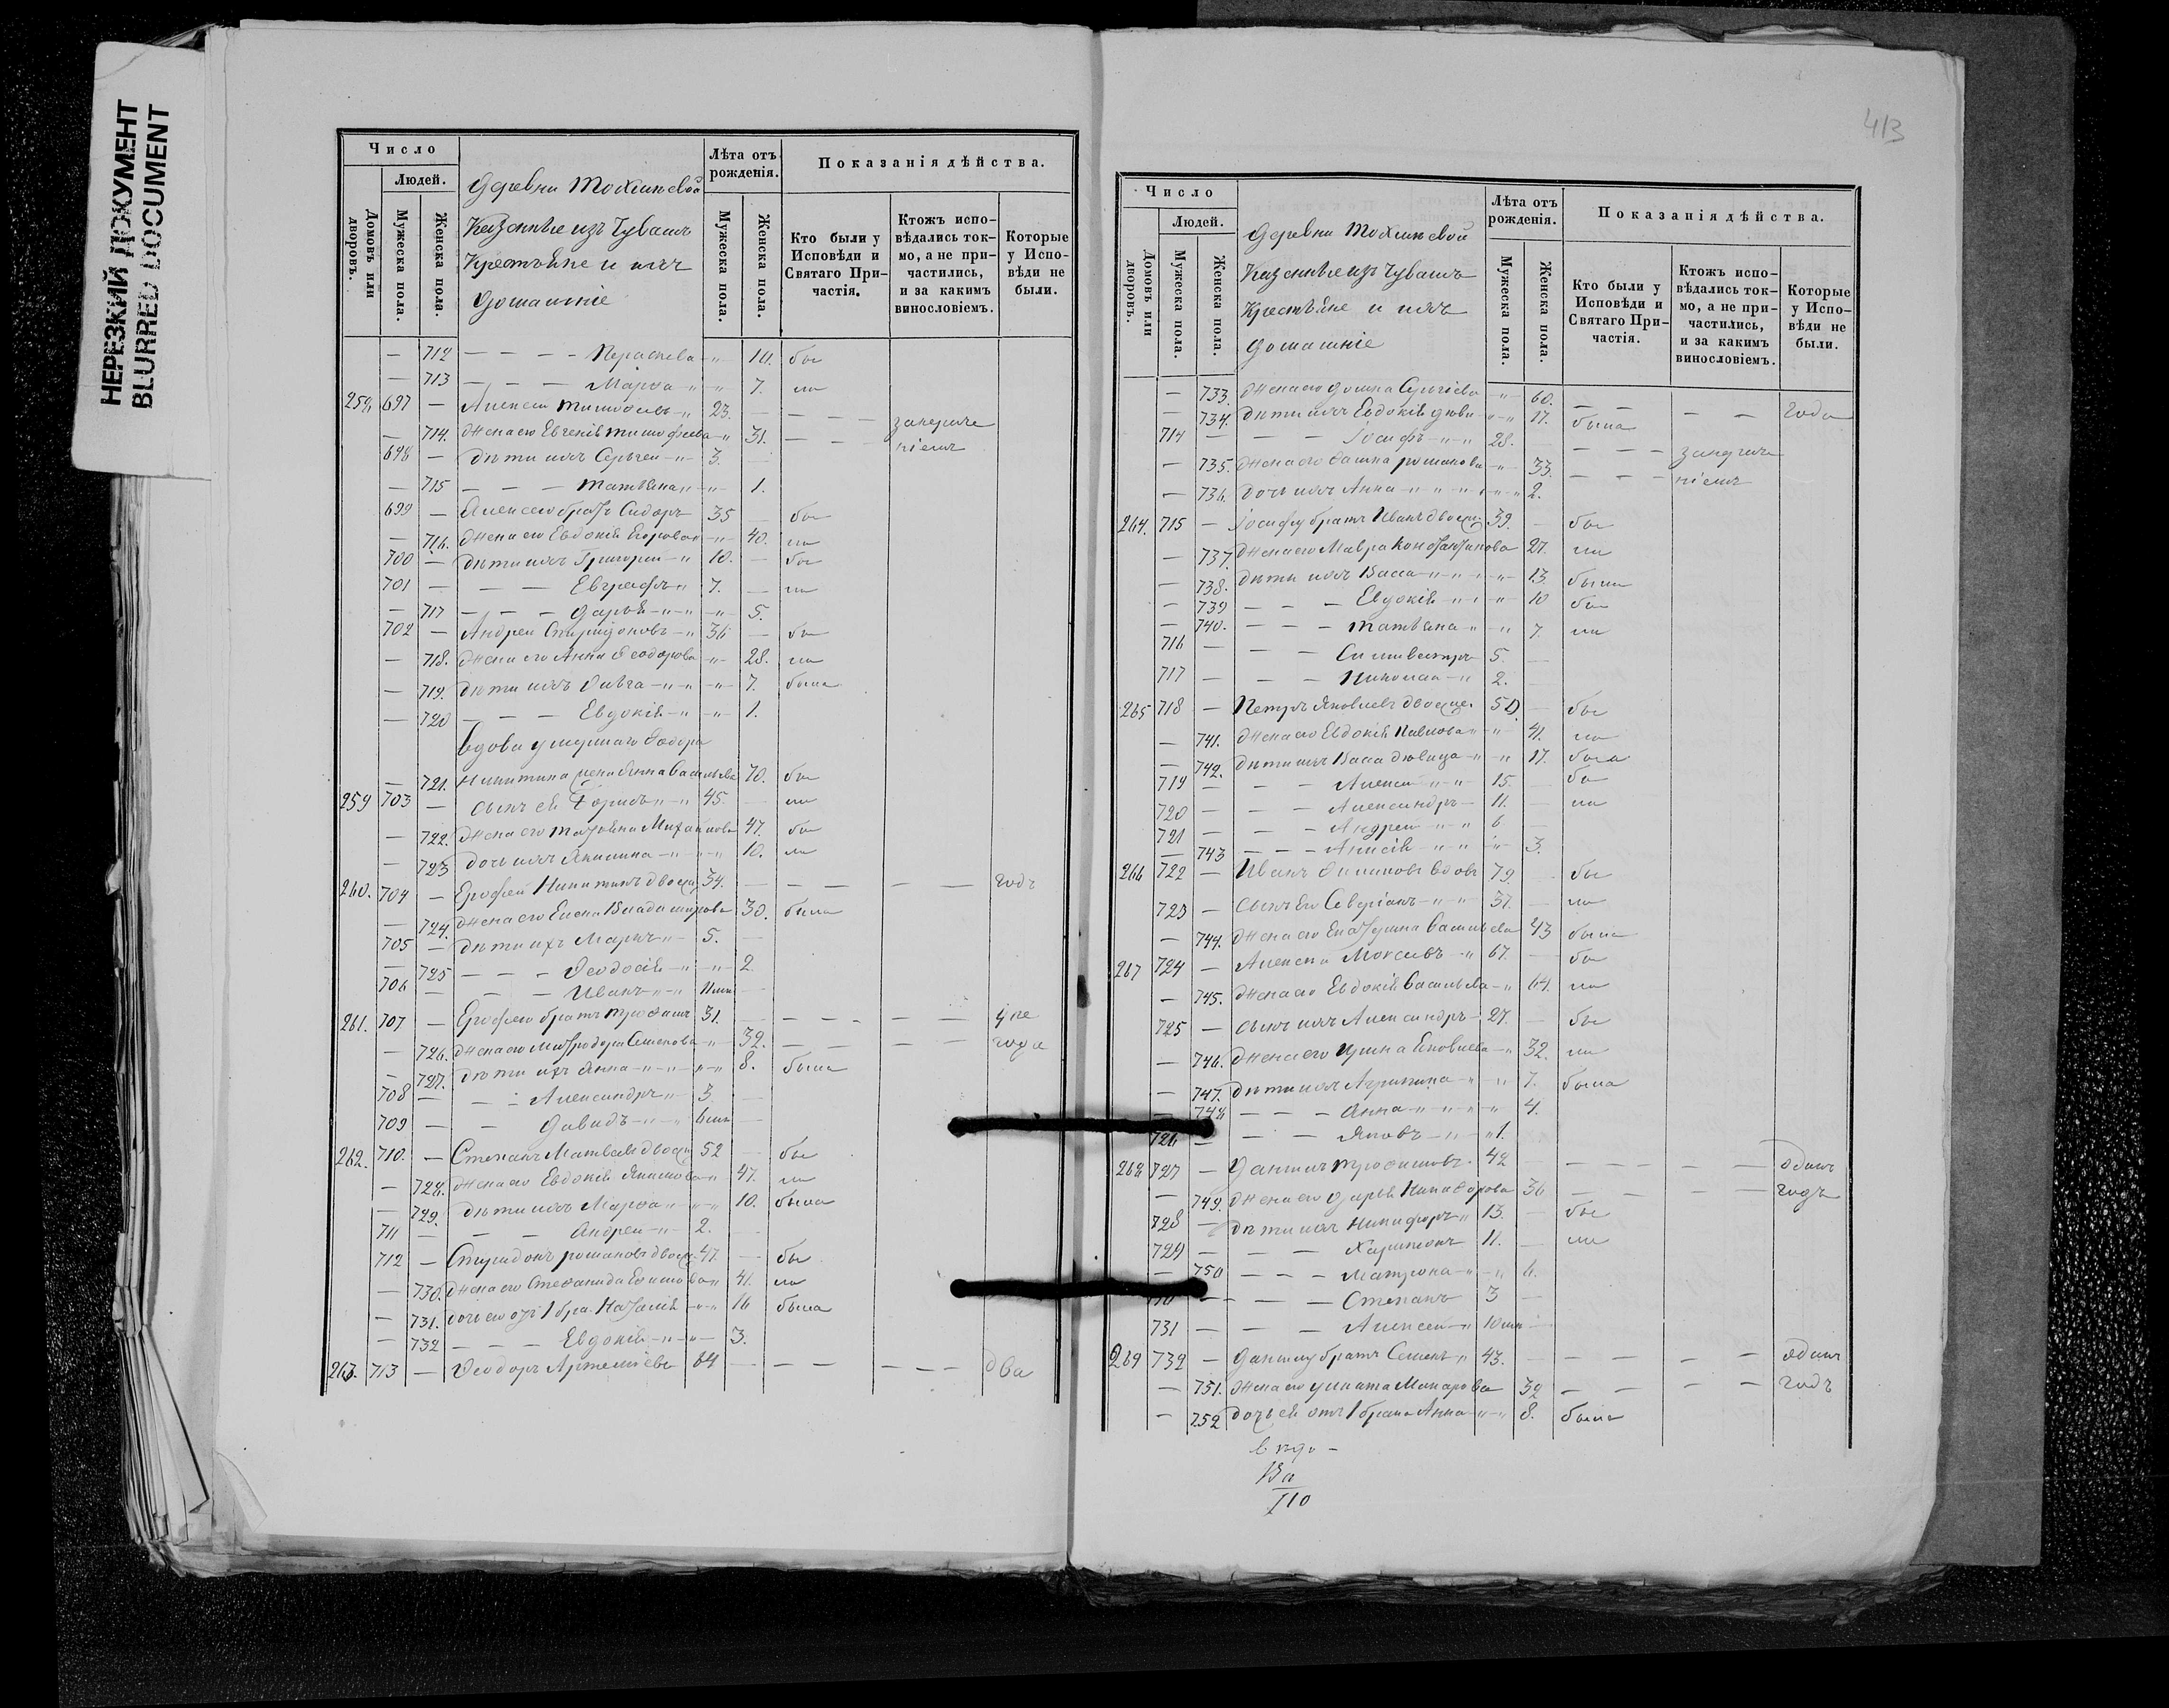 НЕРЕЗКИЙ ДОКУМЕНТ
BLURRED DOCUMENT
Число
Людей.
Домовъ или дворовъ.
Мужеска пола.
Женска пола.
Деревни Тохликовой
Казенные изъ Чувашъ
Крестьяне и ихъ
домашніе
Лѣта отъ рожденія.
Мужеска пола.
Женска пола.
Показанія дѣйства.
Кто были у Исповѣди и Святаго Причастія.
Ктожъ исповѣдались токмо, а не причастились, и за какимъ винословіемъ.
Которые у Исповѣди не были.
— 712 — — — Параскева 10. бы
— 713 — — — Марѳа 7. ли
697 — Алексей Тимоѳеевъ 23.
— 714. Жена его Евгенія Тимофеева 31.
698 — Дѣти ихъ Сергеи 3.
— 715 — — — Татьяна 1.
699 — Алексею братъ Сидоръ 35 бы
— 716. Жена его Евдокія Егорова 40. ли
700 — Дѣти ихъ Григорій 10. бы
701 — — — Евграфъ 7. ли
— 717 — — — Дарья 5.
702 — Андреи Спиридоновъ 36 бы
— 718. Жена его Анна Ѳеодорова 28. ли
— 719. Дѣти ихъ Ольга 7. была
— 720 — — — Евдокія 1.
Вдова умершаго Ѳедора
— 721. Никитина жена Анна Васильева 70. бы
259 703 — Сынъ ея Борисъ 45. ли
— 722. Жена его Татьяна Михайлова 47. бы
— 723 Дочь ихъ Акилина 10. ли
260. 704 — Ерофей Никитинъ 34. — — — — годъ
— 724. Жена его Елена Владимирова 30. была
705 — Дѣти ихъ Маркъ 5.
— 725 — — — Ѳеодосія 2
706 — — — Иванъ
261. 707 — Ерофею братъ Трофимъ 31.
— 726. Жена его Митродора Семенова 32. — — — — года
— 727. Дѣти ихъ Анна 8. была
708 — — — Александръ 3
709 — — — Давидъ
262. 710. — Степанъ Матвеевъ 52 бы
— 728. Жена его Евдокія Якимова 47. ли
— 729. Дѣти ихъ Марѳа 10. была
711 — — — Андреи 2.
712 — Спиридонъ Романовъ 47. бы
— 730. Жена его Стефанида 41. ли
— 731. Дочь его отъ 1 бра. Наталія 16 была
— 732 — — — Евдокія 3.
263. 713 — Ѳеодоръ Артемьевъ 64 — — — — два
413
Число
Людей.
Домовъ или дворовъ.
Мужеска пола.
Женска пола.
Деревни Тохликовой
Казенные изъ Чувашъ
Крестьяне и ихъ
домашніе
Лѣта отъ рожденія.
Мужеска пола.
Женска пола.
Показанія дѣйства.
Кто были у Исповѣди и Святаго Причастія.
Ктожъ исповѣдались токмо, а не причастились, и за какимъ винословіемъ.
Которые у Исповѣди не были.
— 733. Жена его Домна Сергіева 60. — — — — года
— 734. Дѣти ихъ Евдокія 17. была
714 — — — Іосифъ 28.
— 735. Жена его Романова 33.
— 736. Дочь ихъ Анна 2.
264. 715 — Іосифу братъ Иванъ 39. бы
— 737. Жена его Мавра Константинова 27. ли
— 738. Дѣти ихъ Васса 13 была
— 739 — — — Евдокія 10 бы
— 740. — — — Татьяна 7. ли
716 — — — Силивестръ 5.
717 — — — Николай 2.
265 718 — Петръ Яковлевъ бы
— 741. Жена его Евдокія Павлова 41. ли
— 742. Дѣти ихъ Васса девица 17. была
719 — — — Алексѣй 15. бы
720 — — — Александръ 11. ли
721 — — — Андрей 6
— 743 — — — Анисія 3.
266 722 — Иванъ Филиповъ вдовъ 79. бы
723 — Сынъ Его Северіанъ 37. ли
— 744. Жена его Екатерина Васильева 43 была
267 724 — Алексей Моисеевъ 67. бы
— 745. Жена его Евдокія Васильева 64. ли
725 — Сынъ ихъ Александръ 27. бы
— 746. Жена его Ирина Яковлева 32. ли
— 747. Дѣти ихъ Агрипина 7. была
— 748 — — — Анна 4.
726 — — — Яковъ 1.
268 727 — Даніилъ Трофимовъ 42 — — — — одинъ
— 749. Жена его Дарья Никифорова 36 — — — — годъ
728 — Дѣти ихъ Никифоръ 13. бы
729 — — — Харитонъ 11. ли
— 750 — — — Матрона 6.
— — — Степанъ 3
731 — — — Алексей
269 732 — Даніилу братъ Семенъ 43. — — — — одинъ
— 751. Жена его Улита Макарова 32 — — — — годъ
— 752 Дочь ея отъ 1 брака Анна 8. была